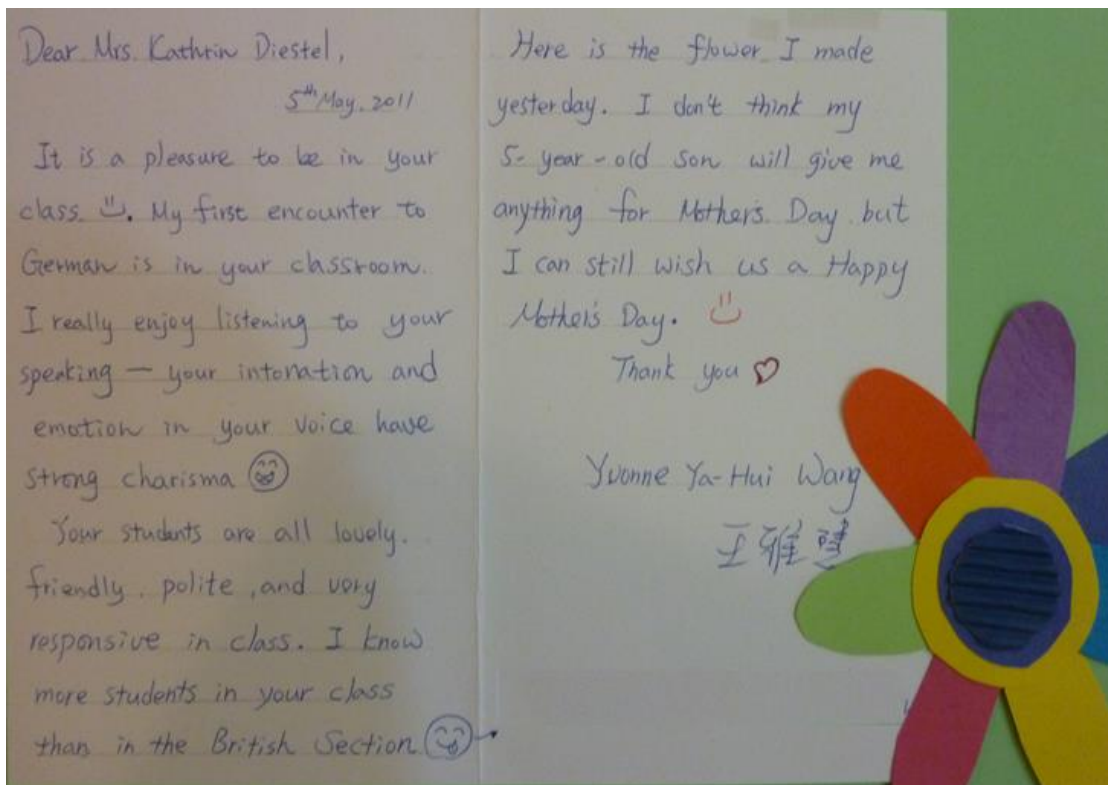 Dear Mrs. Kathrin Diestel,
5th May, 2011
It is a pleasure to be in your
class. My first encounter to
German is in your classroom.
I really enjoy listening to your
speaking — your intonation and
emotion in your voice have
strong charisma
Your students are all lovely.
friendly, polite, and very
responsive in class. I know
more students in your class
than in the British Section
Here is the flower I made
yesterday. I don't think my
5-year-old son will give me
anything for Mother's Day but
I can still wish us a Happy
Mother's Day.
Thank you
Yvonne Ya-Hui Wang
王雅慧